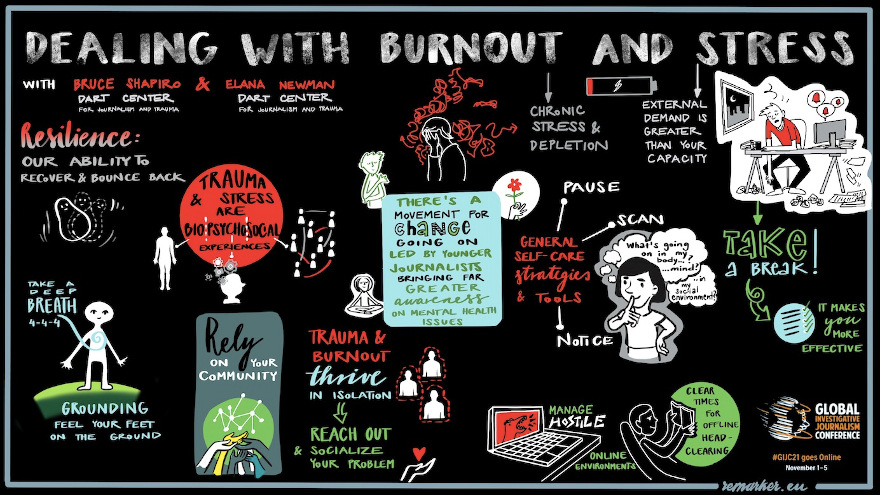 DEALING WITH BURNOUT AND STRESS
WITH BRUCE SHAPIRO & ELANA NEWMAN
DART CENTER
FOR JOURNALISM AND TRAUMA
DART CENTER
FOR JOURNALISM AND TRAUMA
CHRONIC
STRESS &
DEPLETION
EXTERNAL
DEMAND IS
GREATER
THAN YOUR
CAPACITY
Resilience:
OUR ABILITY TO
RECOVER & BOUNCE BACK
TRAUMA
& STRESS
ARE
BIOPSYCHOSOCAL
EXPERIENCES
THERE'S A
MOVEMENT FOR
CHANGE
GOING ON
LED BY YOUNGER
JOURNALISTS
BRINGING FAR
GREATER
awareness
ON MENTAL HEALTH
ISSUES
PAUSE
SCAN
GENERAL
SELF-CARE
strategies
& TOOLS
NOTICE
What's going
on in my
body...?
...mind?
...in my
social
environment?
TAKE
A BREAK!
IT MAKES
you
MORE
EFFECTIVE
TAKE A
DEEP
BREATH
4-4-4
GROUNDING
FEEL YOUR FEET
ON THE GROUND
Rely
ON YOUR
COMMUNITY
TRAUMA &
BURNOUT
thrive
IN ISOLATION
REACH OUT
& SOCIALIZE
YOUR PROBLEM
MANAGE
HOSTILE
ONLINE
ENVIRONMENTS
CLEAR
TIMES
FOR
OFFLINE
HEAD-
CLEARING
GLOBAL
INVESTIGATIVE
JOURNALISM
CONFERENCE
#GIJC21 goes Online
November 1-5
remarker.eu